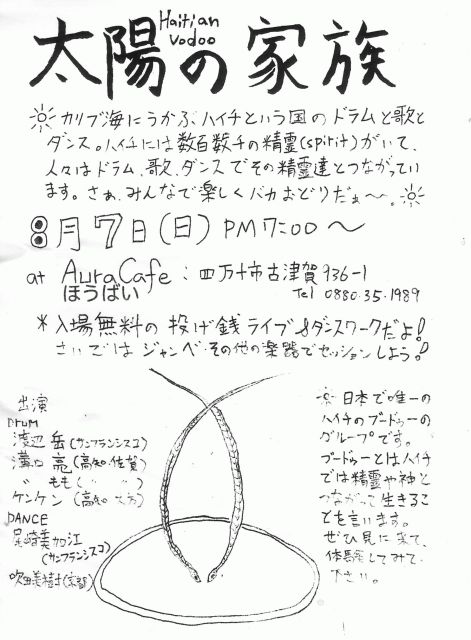 Haitian
Vodoo
太陽の家族
カリブ海にうかぶハイチという国のドラムと歌と
ダンス。ハイチには数百数千の精霊(spirit)がいて、
人々はドラム、歌、ダンスでその精霊達とつながってい
ます。さぁ、みんなで楽しくバカおどりだぁ〜。
8月7日(日) PM7:00〜
at AuraCafe : 四万十市古津賀936-1
ほうばい Tel 0880.35.1989
*入場無料の投げ銭ライブ&ダンスワークだよ!
さいごではジャンベ・その他の楽器でセッションしよう!
出演
DRUM
渡辺 岳(サンフランシスコ)
溝口 亮(高知・佐賀)
〃 もも(〃 〃)
ケンケン(高知
DANCE
尾崎美加江
(サンフランシスコ)
吹田美樹
日本で唯一の
ハイチのブードゥーの
グループです。
ブードゥーとはハイチ
では精霊や神と
つながって生きるこ
とを言います。
ぜひ見に来て、
体験してみて
下さい。